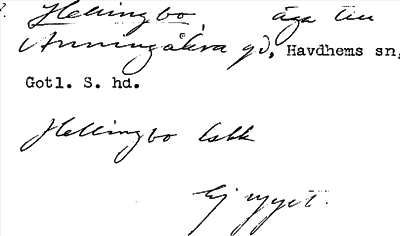 Hellingbo, äga till
Anningåkra gd, Havdhems sn,
Gotl. S. hd.
Hellingbo lskk
Ej nytt.